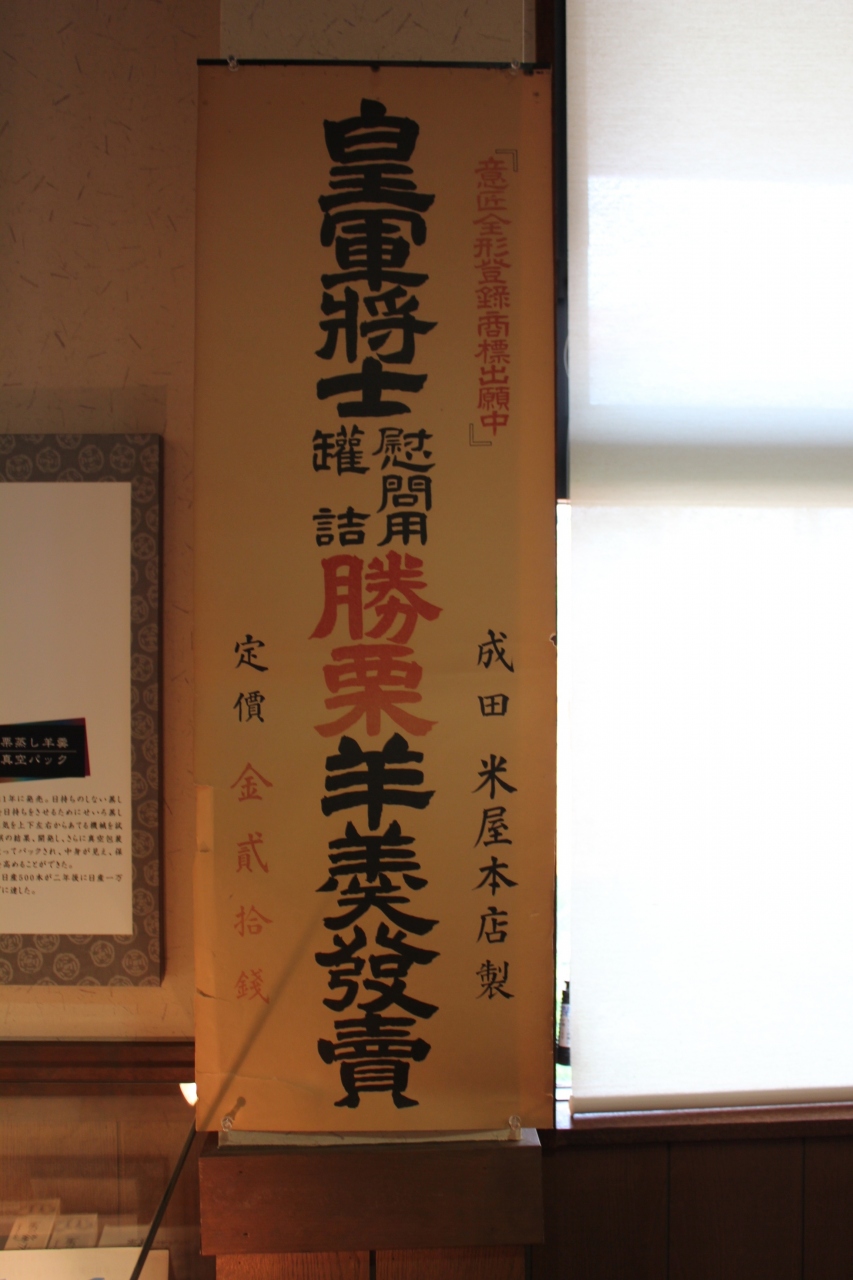 『意匠全形登錄商標出願中』
皇軍將士
慰問用
罐詰
勝栗
羊羹發賣
成田 米屋本店製
定價 金貳拾錢
果蒸し羊羹
真空パック
1年に発売。日持ちのしない蒸し
日持ちをさせるためにせいろ蒸し
気を上下左右からあてる機械を試
の結果、開発し、さらに真空包装
ってパックされ、中身が見え、保
高めることができた。
日産500本が二年後に日産一万
に達した。